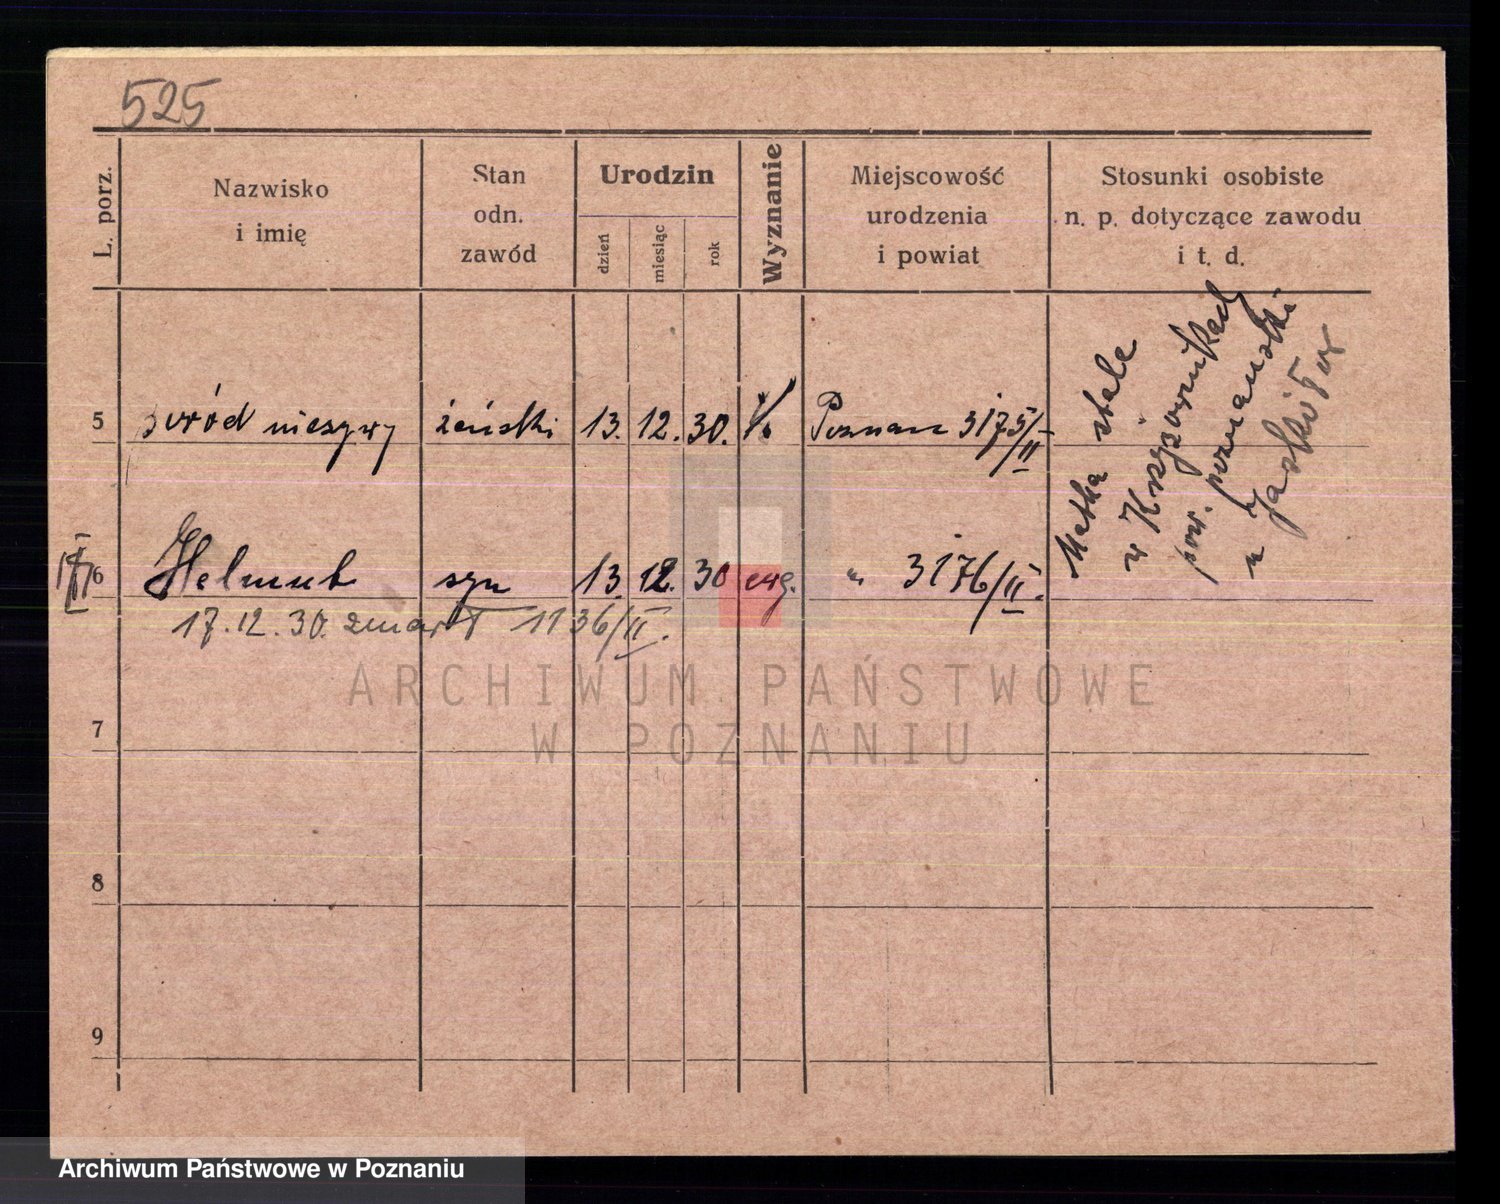 525
L. porz.
Nazwisko
i imię
Stan
odn.
zawód
Urodzin
dzień
miesiąc
rok
Wyznanie
Miejscowość
urodzenia
i powiat
Stosunki osobiste
n. p. dotyczące zawodu
i t. d.
5 wród nieżywy żeński 13. 12. 30. Poznań 3175/II
Matka stale
w Krzyżownikach
pow. poznański
u Jaskółów
6 Helmut syn 13. 12. 30 ewg. " 3176/II.
17.12.30. zmarł 1136/II.
7
8
9
ARCHIWUM PAŃSTWOWE
W POZNANIU
Archiwum Państwowe w Poznaniu